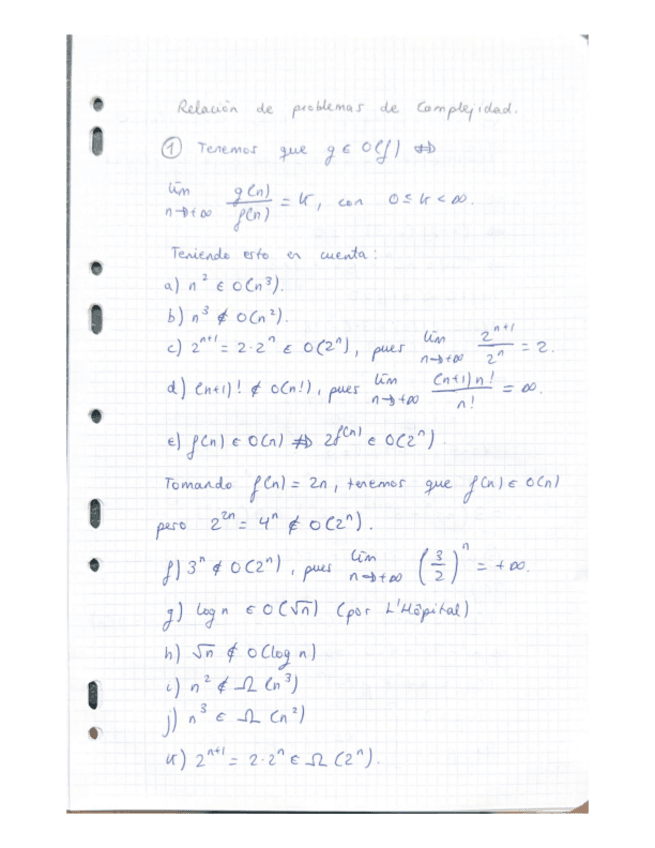 Relación de problemas de Complejidad.
① Tenemos que g ∈ O(f) ⇔
lim n→+∞ g(n)/f(n) = K, con 0 ≤ K < ∞.
Teniendo esto en cuenta:
a) n² ∈ O(n³).
b) n³ ∉ O(n²).
c) 2ⁿ⁺¹ = 2·2ⁿ ∈ O(2ⁿ), pues lim n→+∞ 2ⁿ⁺¹/2ⁿ = 2.
d) (n+1)! ∉ O(n!), pues lim n→+∞ (n+1)n!/n! = ∞.
e) f(n) ∈ O(n) ⇏ 2^f(n) ∈ O(2ⁿ).
Tomando f(n) = 2n, tenemos que f(n) ∈ O(n)
pero 2²ⁿ = 4ⁿ ∉ O(2ⁿ).
f) 3ⁿ ∉ O(2ⁿ), pues lim n→+∞ (3/2)ⁿ = +∞.
g) log n ∈ O(√n) (por L'Hôpital)
h) √n ∉ O(log n)
i) n² ∉ Ω(n³)
j) n³ ∈ Ω(n²)
k) 2ⁿ⁺¹ = 2·2ⁿ ∈ Ω(2ⁿ).